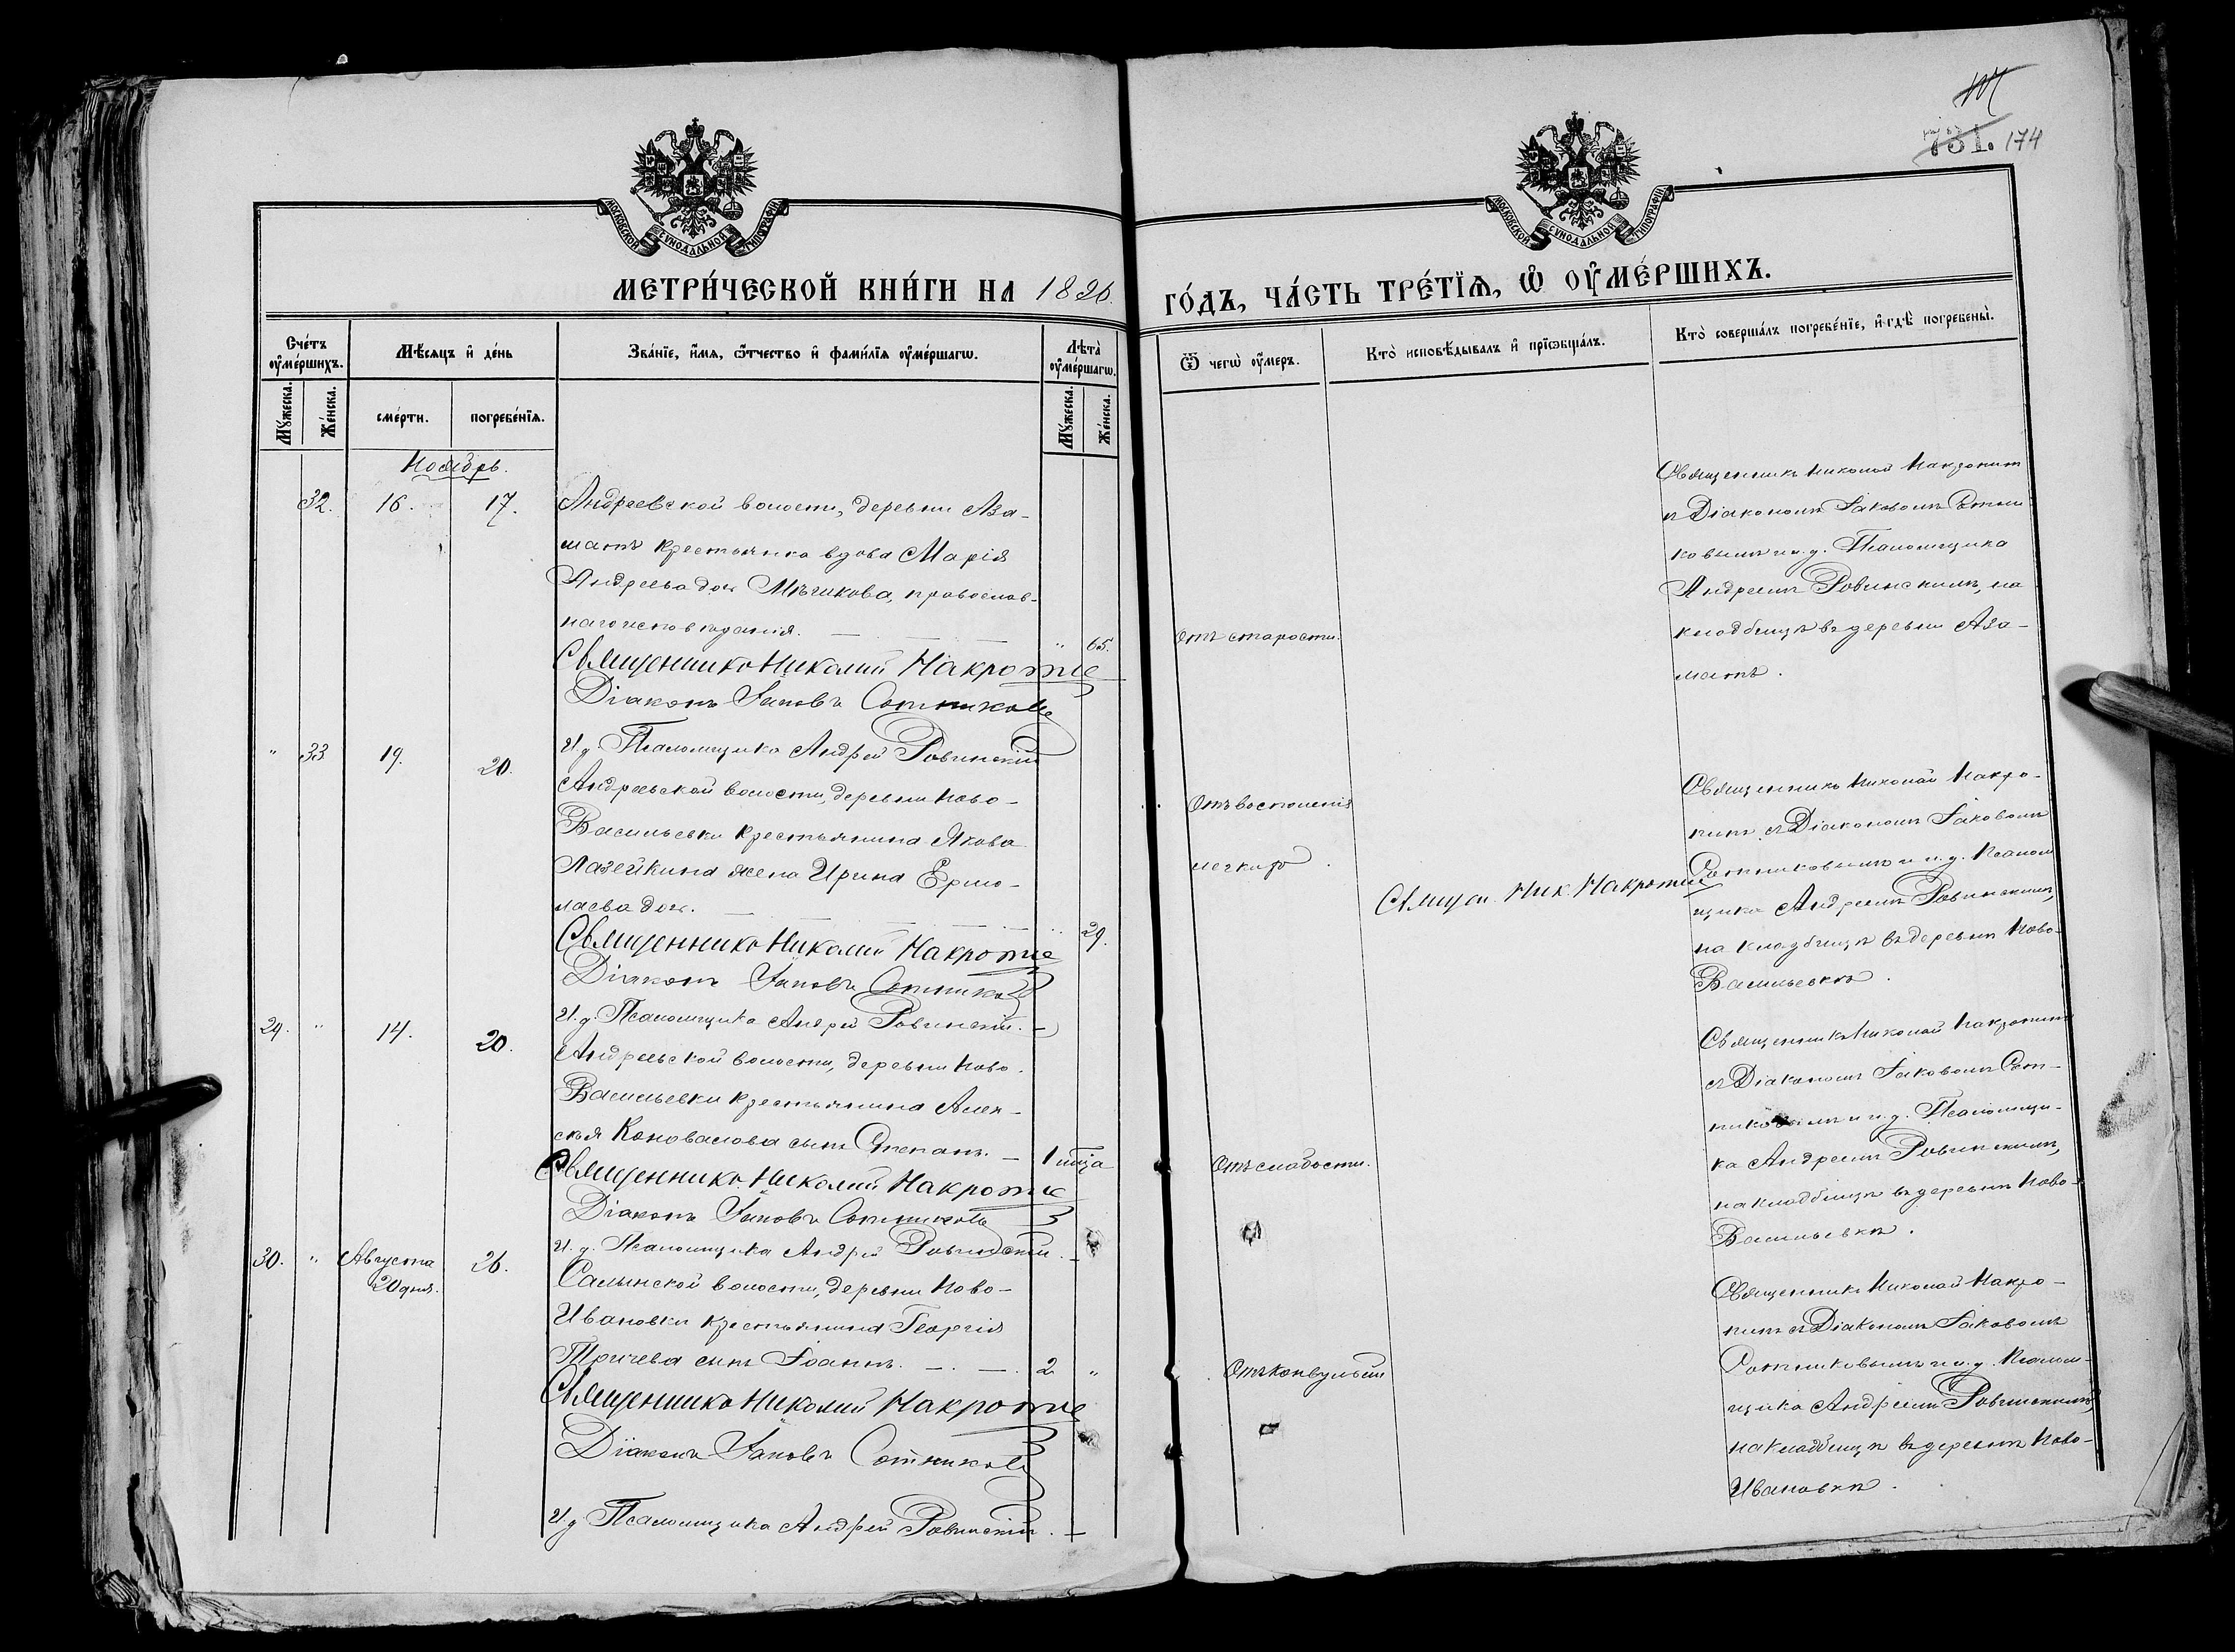 174
731.
МОСКОВСКОЙ СѴНОДАЛЬНОЙ ТИПОГРАФІИ
МОСКОВСКОЙ СѴНОДАЛЬНОЙ ТИПОГРАФІИ
МЕТРИ́ЧЕСКОЙ КНИ́ГИ НА 1896.
ГО́ДЪ, ЧА́СТЬ ТРЕ́ТЇѦ, Ѡ ОУ҆МЕ́РШИХЪ.
Сче́тъ оу҆ме́ршихъ.
Мѣ́сяцъ и҆ де́нь
Зва́нїе, и҆́мя, ѻ҆́тчество и҆ фами́лїя оу҆ме́ршагѡ.
Лѣта̀ оу҆ме́ршагѡ.
Ѿ чегѡ̀ оу҆́меръ.
Кто̀ исповѣ́дывалъ и҆ прїѻбща́лъ.
Кто̀ соверша́лъ погребе́нїе, и҆ гдѣ̀ погребены̀.
Му́жеска.
Же́нска.
сме́рти.
погребе́нїя.
Му́жеска.
Же́нска.
Ноябрь.
32. 16. 17.
Андреевской волости, деревни Аза-
матъ крестьянка вдова Марія
Андреева доч. Мѣчикова, православ-
наго исповѣданія. — — — " 65.
Священникъ Николай Накропинъ
Діаконъ Іаковъ Сотниковъ
И. д. Псаломщика Андрей Ровинскій
Отъ старости.
Священникъ Николай Накропин
съ Діакономъ Іаковомъ Сотни
ковымъ и и. д. Псаломщика
Андреемъ Ровинскимъ, на
кладбищѣ въ деревни Аза-
матъ.
" 33 19. 20.
Андреевской волости, деревни Ново-
Васильевки крестьянина Якова
Лазейкина жена Ирина Ермо-
лаева доч. — — — " 29.
Священникъ Николай Накропинъ
Діаконъ Іаковъ Сотниковъ
И. д. Псаломщика Андрей Ровинскій. —
Отъ воспаленія
легкихъ.
Священ. Ник. Накропинъ
Священникъ Николай Накро-
пинъ съ Діакономъ Іаковомъ
Сотниковымъ и и. д. Псалом
щика Андреемъ Ровинскимъ,
на кладбищѣ въ деревнѣ Ново-
Васильевкѣ.
29. " 14. 20.
Андреевской волости, деревни Ново-
Васильевки крестьянина Алек-
сѣя Коновалова сынъ Степанъ. —
Священникъ Николай Накропинъ
Діаконъ Іаковъ Сотниковъ
И. д. Псаломщика Андрей Ровинскій. —
Отъ слабости.
Священникъ Николай Накропинъ
съ Діакономъ Іаковомъ Сот-
никовымъ и и. д. Псаломщи-
ка Андреемъ Ровинскимъ,
на кладбищѣ въ деревнѣ Ново-
Васильевкѣ.
30. " Августа 26.
20 дня.
Салынской волости, деревни Ново-
Ивановки крестьянина Георгія
сынъ Іоаннъ. — . — . 2 "
Священникъ Николай Накропинъ
Діаконъ Іаковъ Сотниковъ
И. д. Псаломщика Андрей Ровинскій. —
Отъ конвульсіи
Священникъ Николай Накро-
пинъ съ Діакономъ Іаковомъ
Сотниковымъ и и. д. Псалом-
щика Андреемъ Ровинскимъ,
на кладбищѣ въ деревнѣ Ново-
Ивановкѣ.